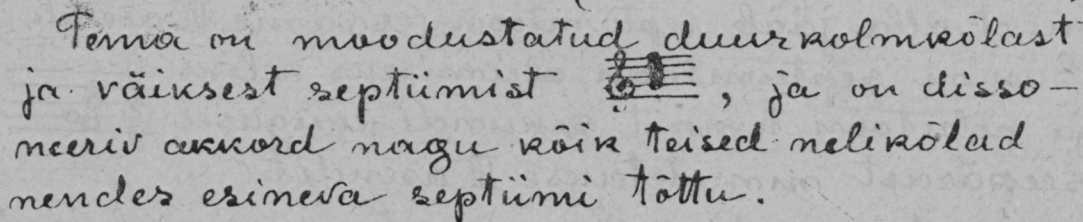 Tema on moodustatud duurkolmkõlast
ja väiksest septiimist , ja on disso-
neeriv akkord nagu kõik teised nelikõlad
nendes esineva septiimi tõttu.